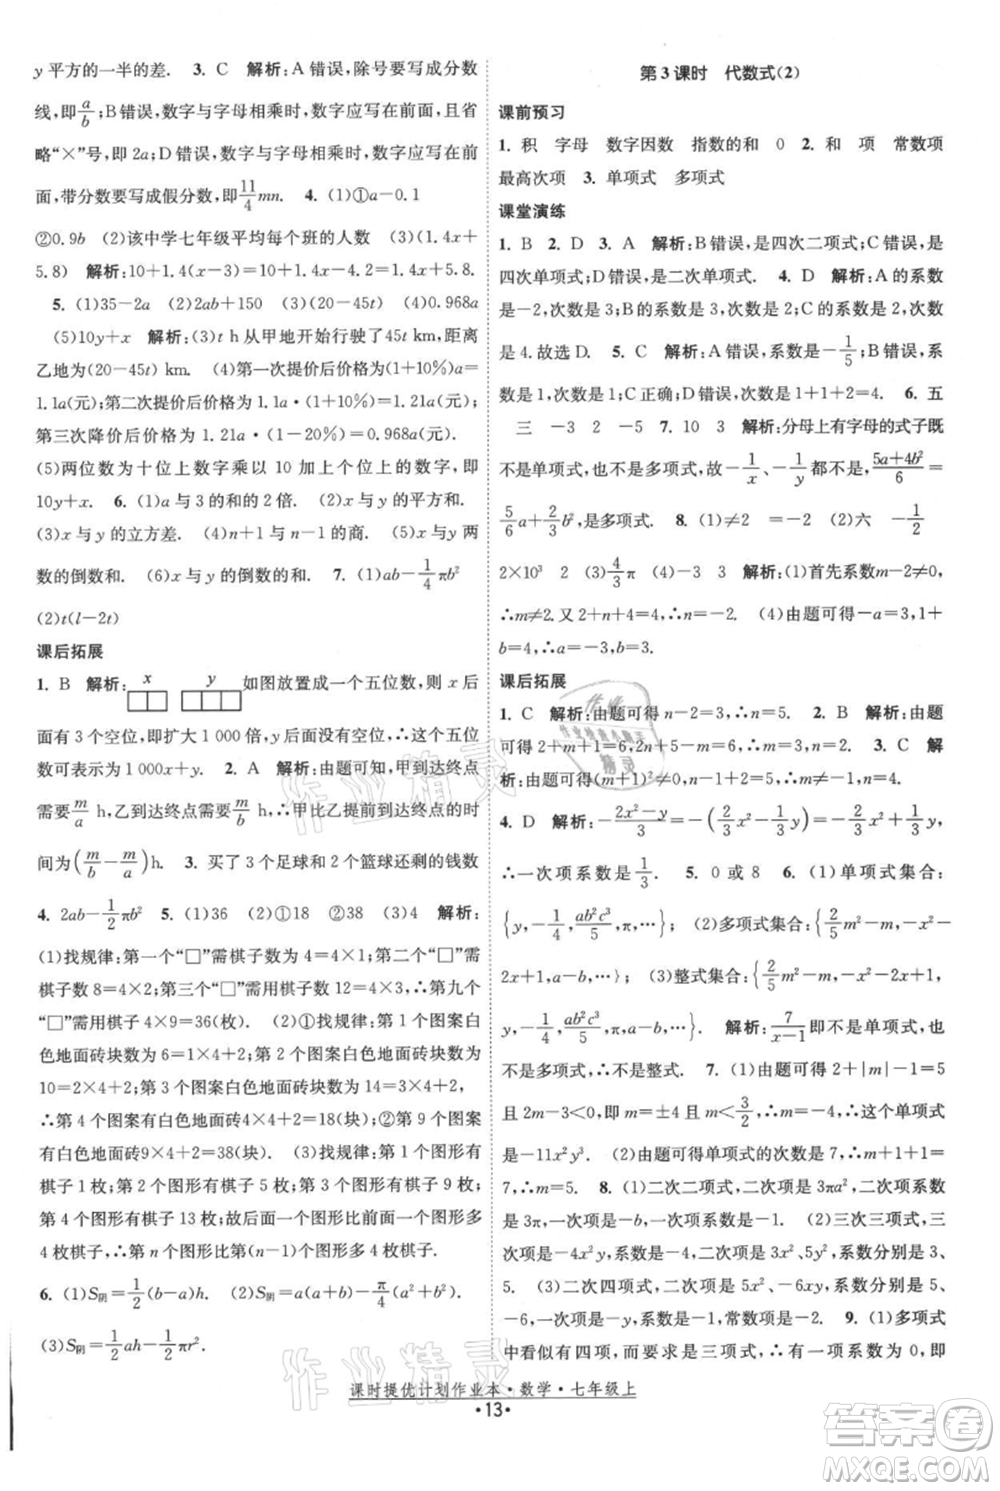 y 平方的一半的差. 3. C 解析:A 错误,除号要写成分数
线,即a/b;B 错误,数字与字母相乘时,数字应写在字母前
面;C 正确;D 错误,数字与字母相乘时,数字应写在前面,并且省
略“×”号,即 2a;D 错误,数字与字母相乘时,数字应写在前
面,带分数要写成假分数,即 11/4 mn. 4. (1)①a-0.1
②0.9b (2)该中学七年级平均每个班的人数 (3)(1.4x+
5.8) 解析:(3)10+(x-3)×1.4=10+1.4x-4.2=1.4x+5.8.
5. (1)35-2a (2)2ab+150 (3)(S-45t) (4)0.968a
(5)10y+x 解析:(3)t h 从甲地开始行驶了45t km,距离
乙地为(200-45t) km. (4)第一次提价后价格为
1.1a(元);第二次提价后价格为 1.1a·(1+10%)=1.21a(元);
第三次降价后价格为 1.21a·(1-20%)=0.968a(元).
(5)两位数为十位上数字乘以 10 加上个位上的数字,即
10y+x. 6. (1)a 与 3 的和的 2 倍. (2)x 与 y 的差的立方.
(3)x 与 y 的立方差. (4)n+1 与 n-1 的商. (5)x 与 y 两
数的倒数和. (6)x 与 y 的倒数的和. 7. (1)ab-1/4πb²
(2)t(l-2t)
课后拓展
1. B 解析: x y 如图放置成一个五位数,则 x 后
面有 3 个空,即扩大 1 000倍,∴这个五位数
可表示为1 000x+y. 2. A 解析:由题可知,甲到达终点
需要 m/a h,乙到达终点需要 m/b h,∴甲比乙提前到达终点的时
间为(m/b-m/a)h. 3. 买了 3 个足球和 2 个篮球还剩的钱数
4. 2ab-1/2πb² 5. (1)36 (2)①18 ②38 (3)4 解析:
(1)找规律:第一个“□”需棋子数 4=4×1;第二个“□”需棋
子数 8=4×2;第三个“□”需棋子数 12=4×3,∴第九个
“□”需用棋子 4×9=36(枚). (2)①找规律:第 1 个图案白
色地面砖块数为 6=4×1+2;第 2 个图案白色地面砖块数为
10=4×2+2;第 3 个图案白色地面砖块数为 14=4×3+2,
∴第 4 个图案有白色地面砖4×4+2=18(块);②第 9 个图案
有白色地面砖9×4+2=38(块). (3)找规律:第 1 个图形有
棋子 1 枚;第 2 个图形有棋子 5 枚;第 3 个图形有棋子 9 枚;
第 4 个图形有棋子 13 枚;故后一个图形比前一个图形多
4 枚棋子,∴第 n 个图形比第(n-1)个图形多 4 枚棋子.
6. (1)S阴=1/2(b-a)h. (2)S阴=a(b-a)-π/4(b-a)².
(3)S阴=1/2ah-1/2πr².
第 3 课时 代数式(2)
课前预习
1. 积 字母 数字因数 指数的和 0 2. 和 项 常数项
最高次项 3. 单项式 多项式
课堂演练
1. B 2. D 3. A 解析:B 错误,是四次二项式;C 错误,是
四次四项式;D 错误,是二次三项式. 4. D 解析:A 的系数
是-2,次数是3;B 的系数是3,次数是2;C 的系数是1,次数
是4.故选 D. 5. C 解析:A 错误,系数是-1/5;B 错误,系
数是 1,次数是 1;C 正确;D 错误,次数是 1+2+1=4. 6. 五
三 -3 2 -5 7. 10 3 解析:分母上有字母的式子既
不是单项式,也不是多项式,故-1/x、-1/y都不是, (5a+4b²)/6=
5/6a+2/3b²,是多项式. 8. (1)≠2 =-2 (2)六 -1/2
2×10³ 2 (3)4/3π 3 (4)-3 3 解析:(1)首先系数m-2≠0,
∴m≠2.又 2+n+4=4,∴n=-2. (4)由题可得-a=3,1+
b=4,∴a=-3,b=3.
课后拓展
1. C 解析:由题可得 n-2=3,∴n=5. 2. B 解析:由题
可得 2+1=n-2,∴n=5. 3. C 解
析:由题可得(m+1)²=0,∴m=-1.
4. D 解析:-(2x²-y)/3=-(2/3x²-1/3y)=-2/3x²+1/3y,
∴一次项系数是1/3. 5. 0 或 8 6. (1)单项式集合:
{y,-1/5,ab²c³/5,…}; (2)多项式集合:{2/5m²-m,-x²-
2x+1,a-b,…}; (3)整式集合:{2/5m²-m,-x²-2x+1,
y,-1/5,ab²c³/5,a-b,…} 解析:7/(x-1)即不是单项式,也
不是多项式,∴不是整式. 7. (1)由题可得 2+|m|-1=5
且 2m-3<0,即 m=±4且 m<3/2,∴m=-4,∴这个单项式
是-11x²y³. (2)由题可得多项式的次数为 7,∴2+n+1=
7,∴n=4. 8. (1)二次二项式,二次项为 3πa²,二次项系数
为 3π,一次项为-b,一次项系数为-1. (2)三次三项式,
三次项为-4x²y,系数为-4;二次项为3x²、5y²,系数分别是 3、
5. (3)二次四项式,二次项是 5x²、-6xy,系数分别为 5、
-6,一次项为-x,一次项系数为-1,常数项是-1. 9. (1)从多项式
中可看出一次项系数……,∴……,即
课时提优计划作业本·数学·七年级上
·13·
作业精灵
答案圈
MXQE.COM